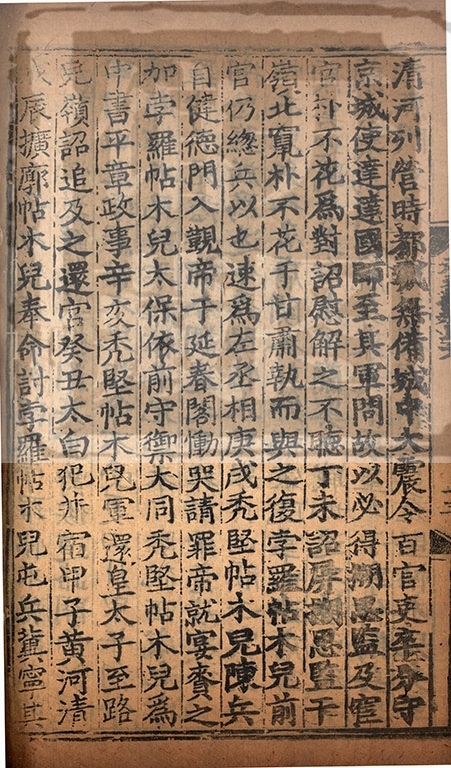 清河列營時都城無備城中大震令百官吏卒分守
京城使達達國師至其軍問故以必得搠思監及宦
官朴不花爲對詔慰解之不聽丁未詔屏搠思監于
嶺北竄朴不花于甘肅執而與之復孛羅帖木兒前
官仍緫兵以也速爲左丞相庚戌禿堅帖木兒陳兵
自健德門入覲帝于延春閣慟哭請罪帝就宴賚之
加孛羅帖木兒太保依前守禦大同禿堅帖木兒爲
中書平章政事辛亥禿堅帖木兒軍還皇太子至路
兒嶺詔追及之還宮癸丑太白犯井宿甲子黃河清
戊辰擴廓帖木兒奉命討孛羅帖木兒屯兵冀寧其